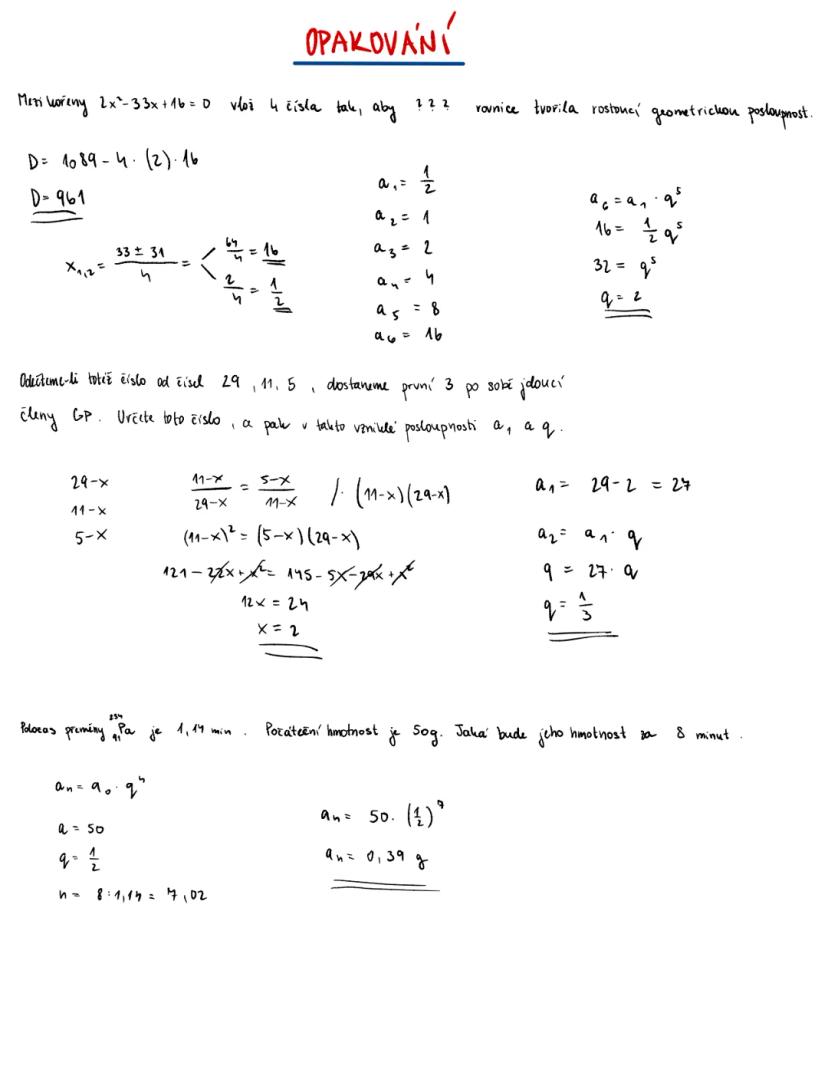 OPAKOVÁNÍ
Mezi kořeny 2x²-33x+16=0 vlož 4 čísla tak, aby ??? rovnice tvořila rostoucí geometrickou posloupnost.
D= 1089 - 4·(2)·16
D= 961
x₁,₂ = (33 ± 31)/4 = < 64/4 = 16
2/4 = 1/2
a₁ = 1/2
a₂ = 1
a₃ = 2
a₄ = 4
a₅ = 8
a₆ = 16
a₆ = a₁ · q⁵
16 = 1/2 q⁵
32 = q⁵
q = 2
Odečteme-li totéž číslo od čísel 29, 11, 5, dostaneme první 3 po sobě jdoucí
členy GP. Určete toto číslo, a pak v takto vzniklé posloupnosti a₁ a q.
29-x
11-x
5-x
(11-x)/(29-x) = (5-x)/(11-x) /·(11-x)(29-x)
(11-x)² = (5-x)(29-x)
121 - 22x + x² = 145 - 5x - 29x + x²
12x = 24
x = 2
a₁ = 29-2 = 27
a₂ = a₁ · q
9 = 27 · q
q = 1/3
Poločas přeměny ²³⁴₉₁Pa je 1,14 min. Počáteční hmotnost je 50g. Jaká bude jeho hmotnost za 8 minut.
aₙ = a₀ · qⁿ
a = 50
q = 1/2
n = 8:1,14 = 7,02
aₙ = 50·(1/2)⁷
aₙ = 0,39 g